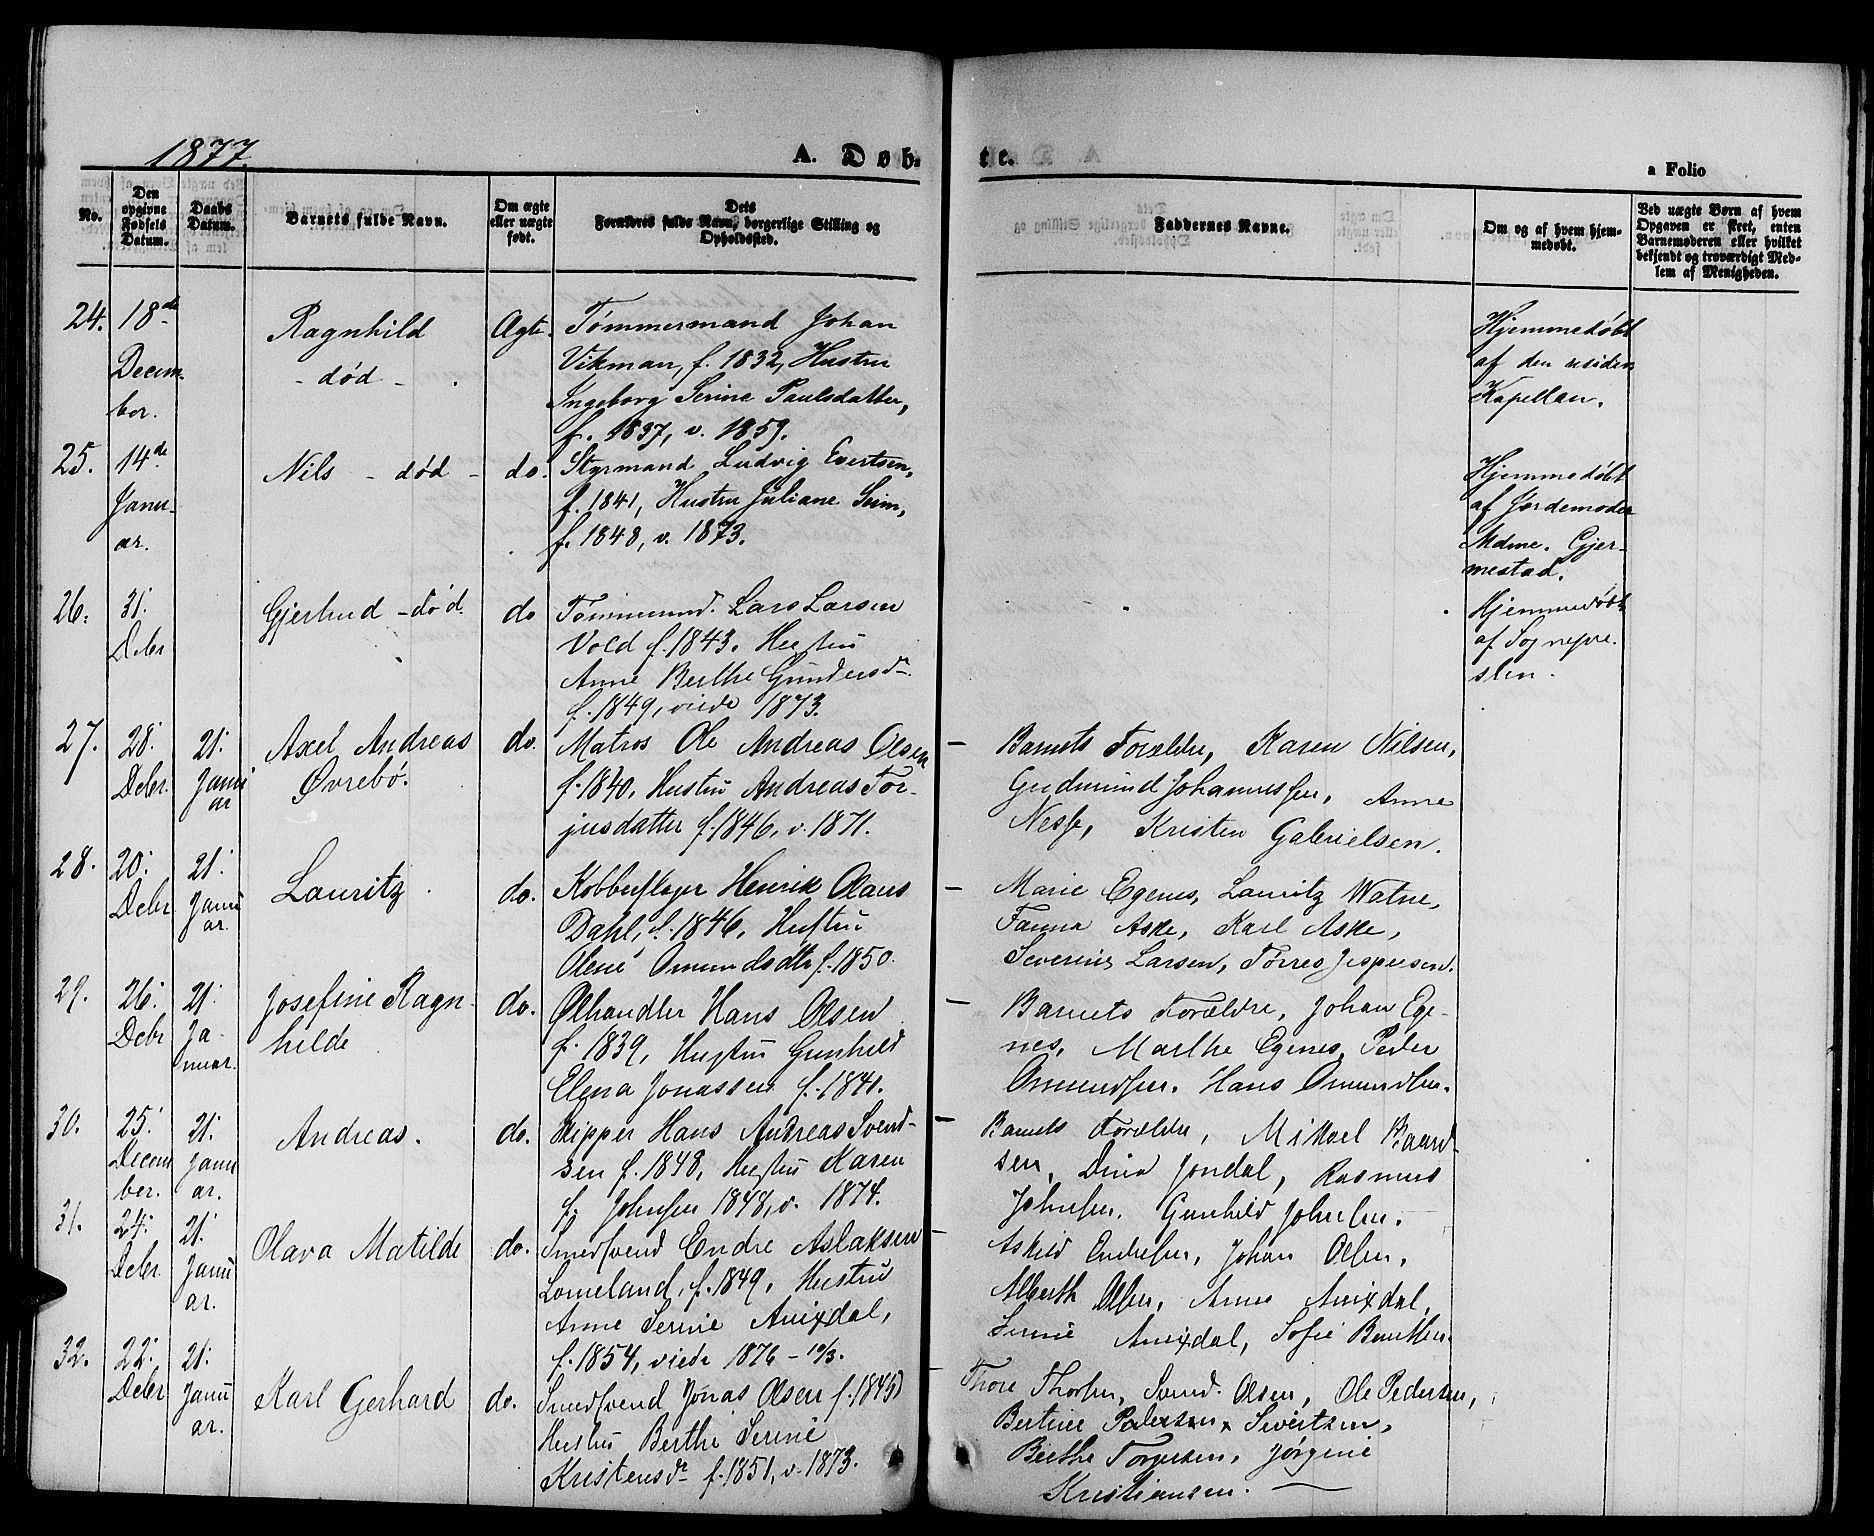 1877.
A. Døb-
te.
a Folio
No.
Den opgivne Fødsels Datum.
Daabs Datum.
Barnets fulde Navn.
Om ægte eller uægte født.
Dets Forældres fulde Navn, borgerlige Stilling og Opholdssted.
Faddernes Navne.
Om og af hvem hjem-
medøbt.
Ved uægte Børn af hvem
Opgaven er skeet, enten
Barnemoderen eller hvilket
bekjendt og troværdigt Med-
lem af Menigheden.
24. 18de Decem-
ber.
Ragnhild
- død -
Ægte.
Tømmermand Johan
Vikman, f. 1832, Hustru
Ingeborg Serine Paulsdatter,
f. 1837, v. 1859.
Hjemmedøbt
af den residen
Kapellan.
25. 14de Janu-
ar.
Nils - død -
do.
Styrmand Ludvig Evertsen,
f. 1841, Hustru Juliane Seim,
f. 1848, v. 1873.
Hjemmedøbt
af Jordemoder
Mdme. Gjer-
mestad.
26. 31. Debr
Gjertrud - død
do
Tømmermd. Lars Larsen
Vold f. 1843. Hustru
Anne Berthe Gundersdr
f. 1849, viede 1873.
Hjemmedøbt
af Sognepre-
sten.
27. 28. Debr. 21. Janu
ar
Axel Andreas
Øvrebø.
do.
Matros Ole Andreas Olsen
f. 1840, Hustru Andreas Tor-
jusdatter f. 1846, v. 1871.
- Barnets Forældre, Karen Nilsen,
Gudmund Johannessen, Anne
Nesse, Kristen Gabrielsen.
28. 20. Debr 21. Janu
ar.
Lauritz
do.
Kobberslager Henrik Olaus
Dahl, f. 1846, Hustru
Olene Omundsdtr f. 1850.
- Marie Egenes, Lauritz Watne,
Fanna Aske, Karl Aske,
Severine Larsen, Tørres Jespersen.
29. 26. Debr 21. Ja-
nuar.
Josefine Ragn-
hilde
do.
Ølhandler Hans Olsen
f. 1839, Hustru Gunhild
Elena Jonassen f. 1841.
- Barnets Forældre, Johan Ege-
nes, Marthe Egenes, Peder
Omundsen. Hans Omundsen.
30. 25. Decem
ber. 21. Janu
ar.
Andreas.
do.
Skipper Hans Andreas Svend-
sen f. 1848, Hustru Karen
f. Johnsen 1848, v. 1874.
- Barnets Forældre, Mikael Baard-
sen, Dina Jondal, Rasmus
Johnsen, Gunhild Johnsen.
31. 24. Debr. 21. Janu
ar.
Olava Matilde
do.
Smedsvend Endre Aslaksen
Lomeland, f. 1849, Hustru
Anne Serine Anixdal,
f. 1854, viede 1876 - 10/3.
- Askild Endresen, Johan Olsen,
Alberth Olsen, Anne Anixdal,
Serine Anixdal, Sofie
32. 22. Debr 21. Janu
ar.
Karl Gerhard
do.
Smedsvend Jonas Olsen f. 1849
Hustru Berthe Serine
Kristensdr f. 1851, v. 1873.
- Thore Thorsen, Svend. Olsen, Ole Pedersen,
Bertine Pedersen, Sivertsen,
Berthe Torgersen, Jørgine
Kristiansen.